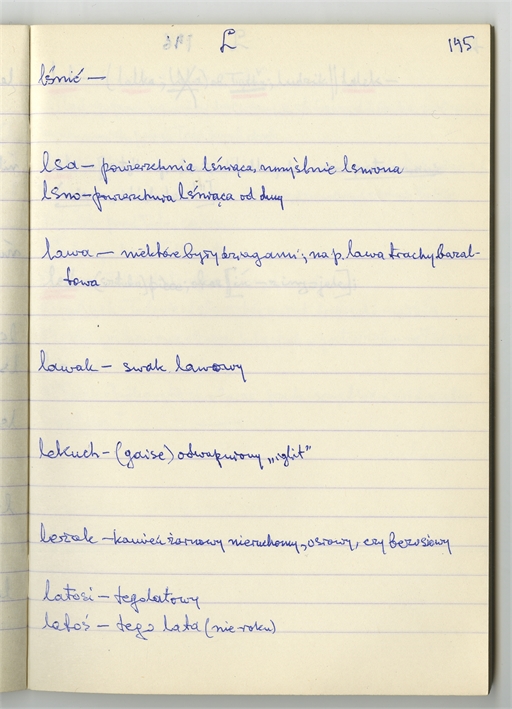 L 195
lśnić —
lsa — powierzchnia lśniąca, umyślnie lsniona
lsno - powierzchnia lśniąca od duy
lawa — niektóre były dziagami; nap. lawa trachybazal-
towa
lawak — swak lawowy
lekuch - (gaise) odwapniony „iglit"
leżak - kamień żarnowy nieruchomy, osiowy, czy bezosiowy
latosi — tegolatowy
latoś — tego lata (nie roku)